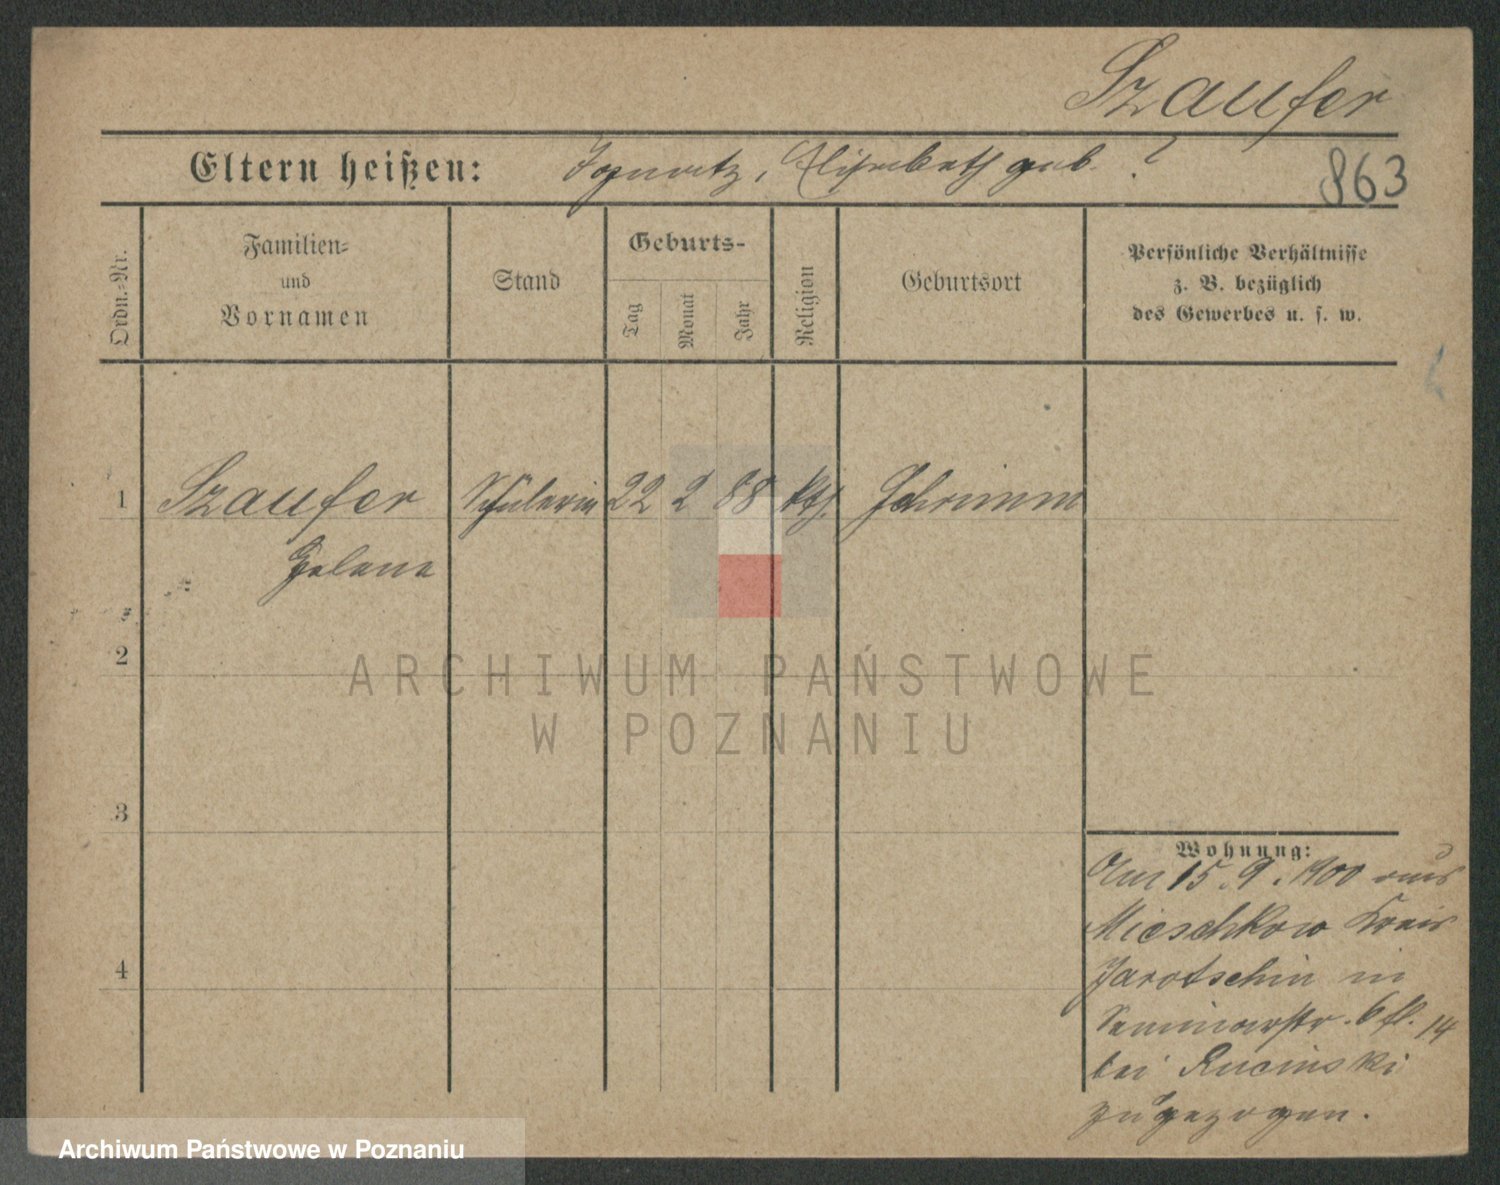 Szaufer
Eltern heißen: Ignatz, Elisabeth geb. ?
863
Ordn.-Nr.
Familien-
und
Vornamen
Stand
Geburts-
Tag
Monat
Jahr
Religion
Geburtsort
Persönliche Verhältnisse
z. B. bezüglich
des Gewerbes u. s. w.
1 Szaufer Schülerin 22 2 88 kth. Schrimm
Helene
2
3
4
ARCHIWUM PAŃSTWOWE
W POZNANIU
Wohnung:
Am 15.9.1900 aus
Mieschkow Kreis
Jarotschin in
Seminarstr. 6 fl. 14
bei Rucinski
zugezogen.
Archiwum Państwowe w Poznaniu